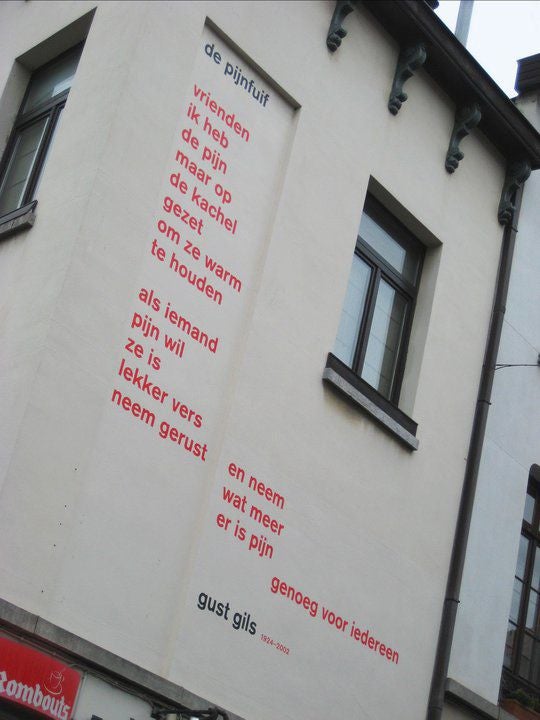 de pijnfuif
vrienden
ik heb
de pijn
maar op
de kachel
gezet
om ze warm
te houden
als iemand
pijn wil
ze is
lekker vers
neem gerust
en neem
wat meer
er is pijn
genoeg voor iedereen
gust gils 1924–2002
Rombouts